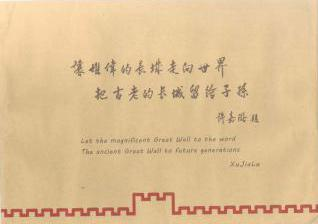 让雄伟的长城走向世界
把古老的长城留给子孫
Let the magnificent Great Wall to the word
The ancient Great Wall to future generations
XuJiaLu